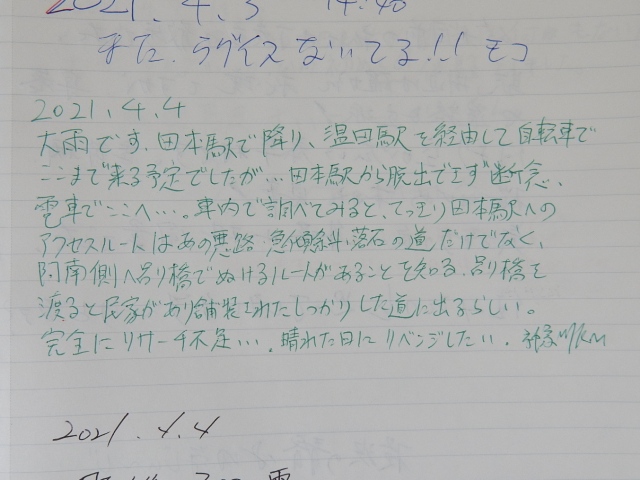 2021.4.3 14:40
また.ウグイスないてる!!モコ
2021.4.4
大雨です.田本駅で降り、温田駅を経由して自転車で
ここまで来る予定でしたが…田本駅から脱出できず断念、
電車でここへ…。車内で調べてみると、てっきり田本駅への
アクセスルートはあの悪路・急傾斜・落石の道だけでなく、
阿南側へ吊り橋でぬけるルートがあることを知る.吊り橋を
渡ると民家があり舗装されたしっかりした道に出るらしい。
完全にリサーチ不足….晴れた日にリベンジしたい.
2021.4.4